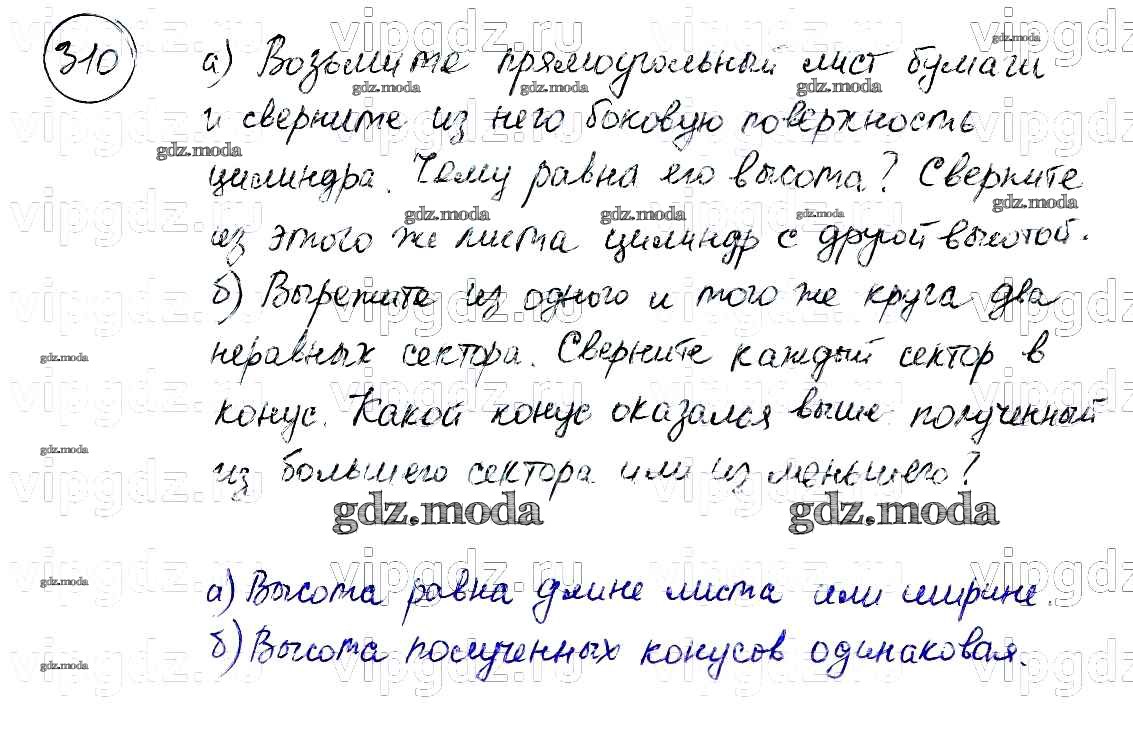 310
а) Возьмите прямоугольный лист бумаги
и сверните из него боковую поверхность
цилиндра. Чему равна его высота? Сверните
из этого же листа цилиндр с другой высотой.
б) Вырежите из одного и того же круга два
неравных сектора. Сверните каждый сектор в
конус. Какой конус оказался выше полученный
из большего сектора или из меньшего?
gdz.moda gdz.moda
а) Высота равна длине листа или ширине.
б) Высота полученных конусов одинаковая.